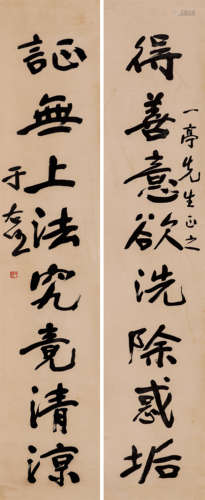 得善意欲洗除惑垢
一亭先生正之
証無上法究竟清涼
于右任